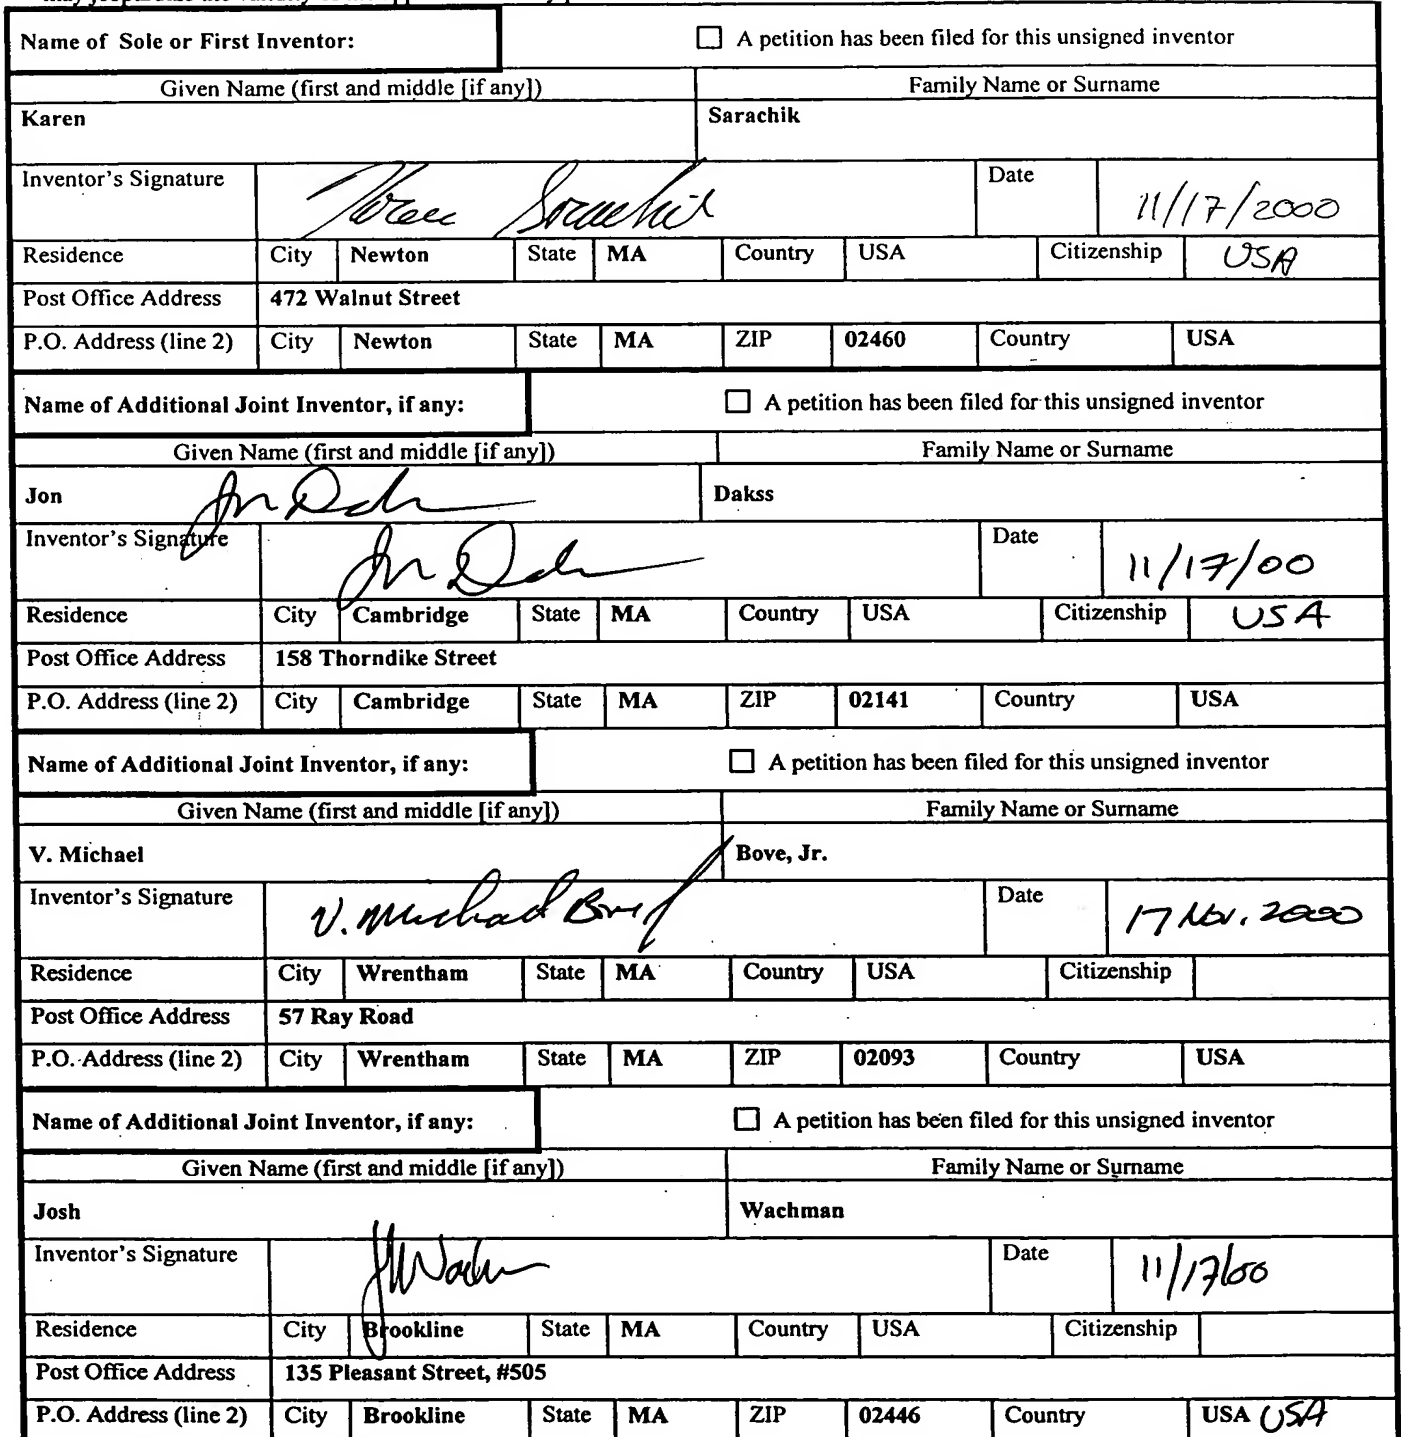 Name of Sole or First Inventor: ☐ A petition has been filed for this unsigned inventor
Given Name (first and middle [if any]) Family Name or Surname
Karen Sarachik
Inventor's Signature Karen Sarachik Date 11/17/2000
Residence City Newton State MA Country USA Citizenship USA
Post Office Address 472 Walnut Street
P.O. Address (line 2) City Newton State MA ZIP 02460 Country USA
Name of Additional Joint Inventor, if any: ☐ A petition has been filed for this unsigned inventor
Given Name (first and middle [if any]) Family Name or Surname
Jon Dakss
Inventor's Signature Date 11/17/00
Residence City Cambridge State MA Country USA Citizenship USA
Post Office Address 158 Thorndike Street
P.O. Address (line 2) City Cambridge State MA ZIP 02141 Country USA
Name of Additional Joint Inventor, if any: ☐ A petition has been filed for this unsigned inventor
Given Name (first and middle [if any]) Family Name or Surname
V. Michael Bove, Jr.
Inventor's Signature V. Michael Bove Date 17 Nov. 2000
Residence City Wrentham State MA Country USA Citizenship
Post Office Address 57 Ray Road
P.O. Address (line 2) City Wrentham State MA ZIP 02093 Country USA
Name of Additional Joint Inventor, if any: ☐ A petition has been filed for this unsigned inventor
Given Name (first and middle [if any]) Family Name or Surname
Josh Wachman
Inventor's Signature Date 11/17/00
Residence City Brookline State MA Country USA Citizenship
Post Office Address 135 Pleasant Street, #505
P.O. Address (line 2) City Brookline State MA ZIP 02446 Country USA USA